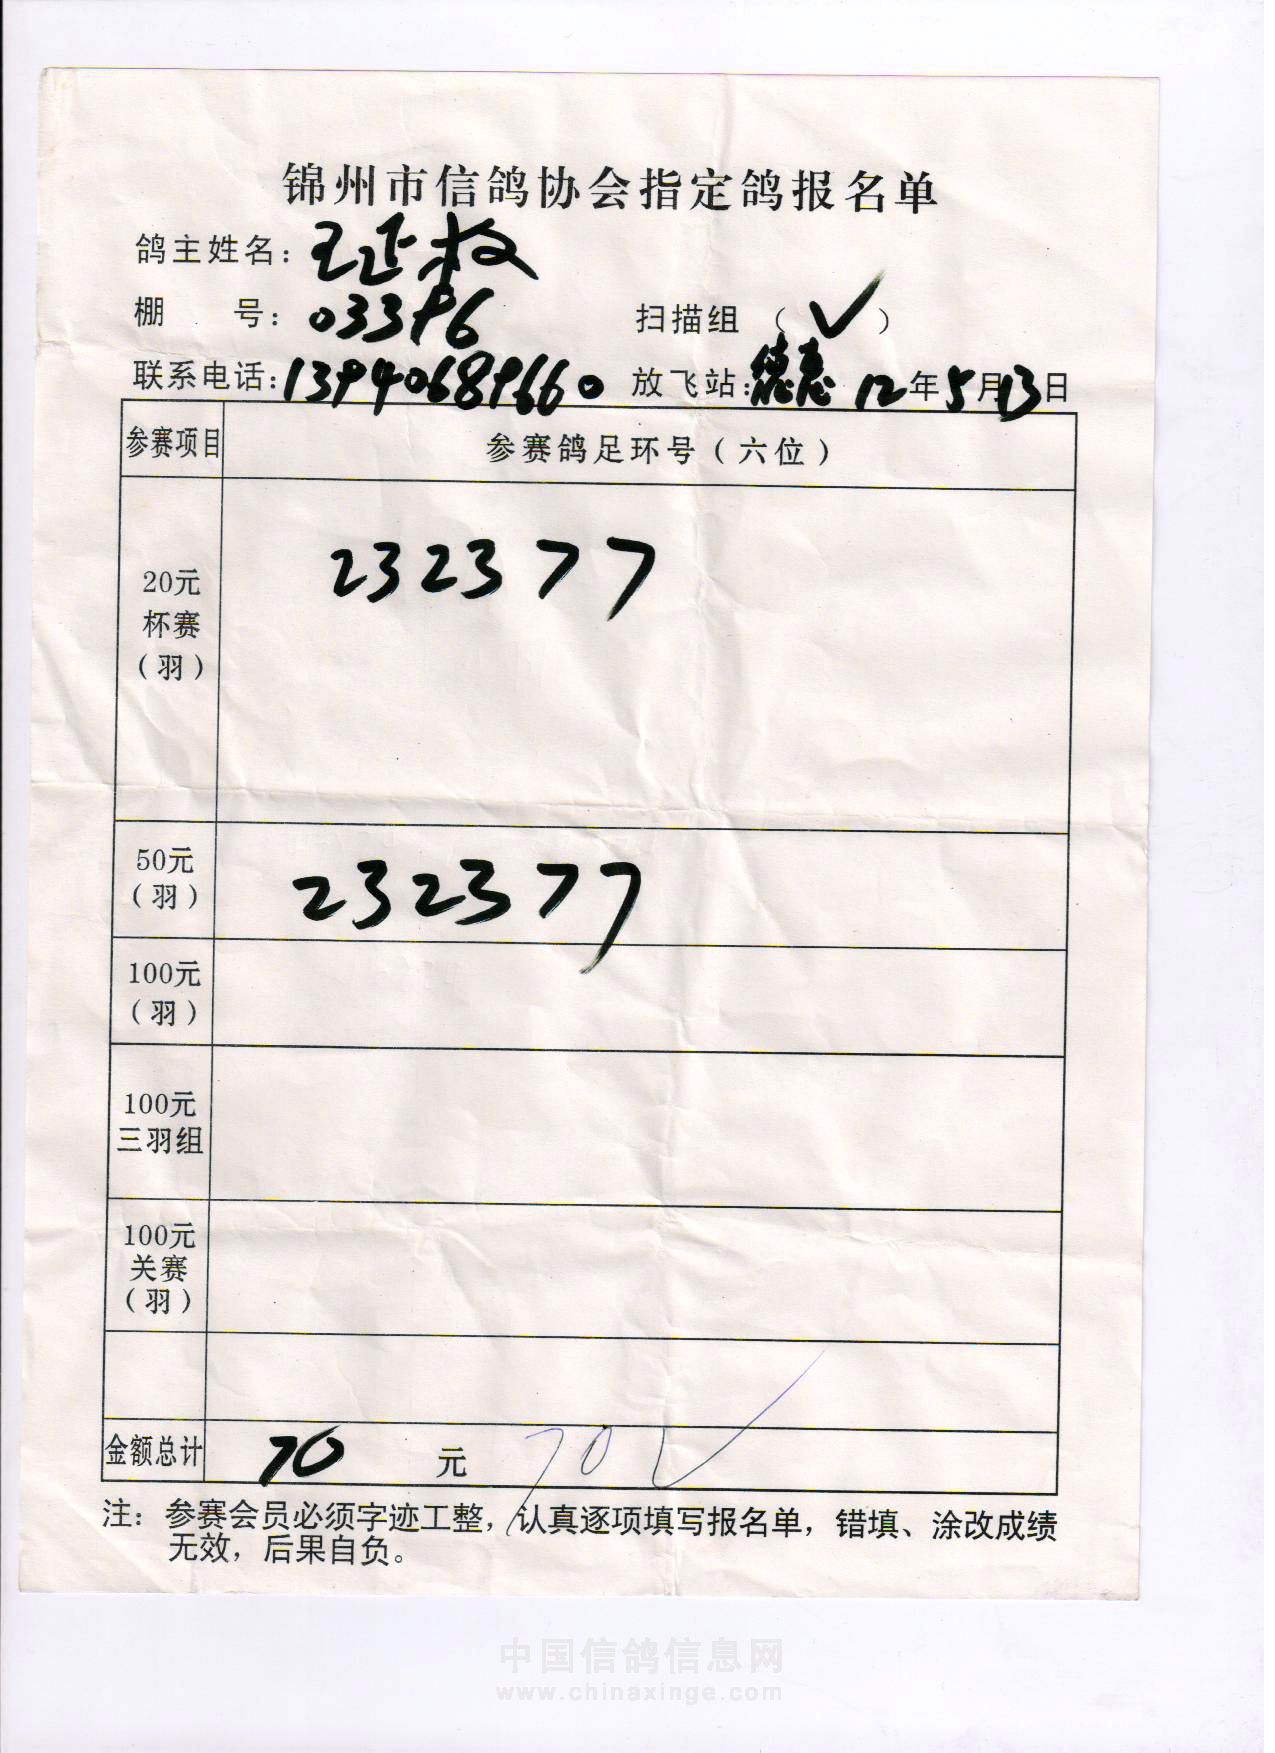 锦州市信鸽协会指定鸽报名单
鸽主姓名：王正权
棚 号：03396 扫描组（✓）
联系电话：13940689660 放飞站：德惠 12年5月13日
参赛项目 参赛鸽足环号（六位）
20元
杯赛
（羽）
232377
50元
（羽）
232377
100元
（羽）
100元
三羽组
100元
关赛
（羽）
金额总计 70 元 70 ✓
注：参赛会员必须字迹工整，认真逐项填写报名单，错填、涂改成绩
无效，后果自负。
中国信鸽信息网
www.chinaxinge.com